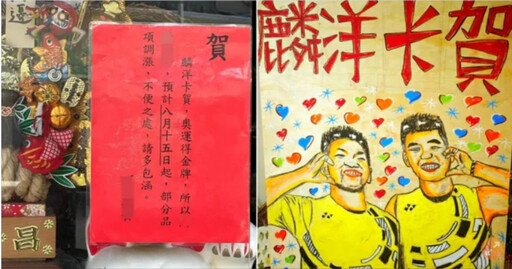 運
昌
賀
麟洋卡賀，奧運得金牌，所以
，預計八月十五日起，部分品
項調漲，不便之處，請多包涵。
麟洋卡賀